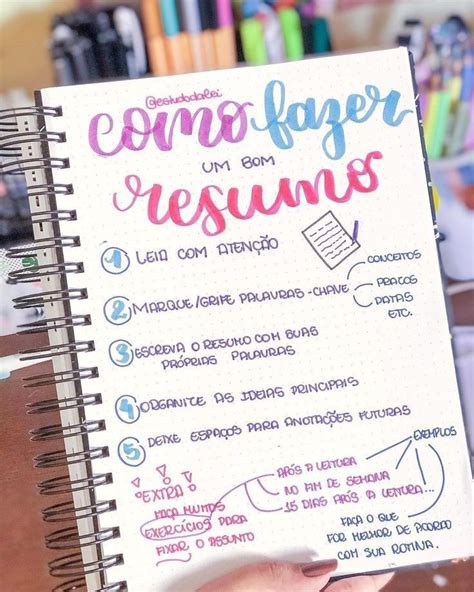 @estudodalei
como fazer
UM BOM
resumo
1 LEIA COM ATENÇÃO
2 MARQUE/GRIFE PALAVRAS-CHAVE
CONCEITOS
PRAZOS
DATAS
ETC.
3 ESCREVA O RESUMO COM SUAS
PRÓPRIAS PALAVRAS
4 ORGANIZE AS IDEIAS PRINCIPAIS
5 DEIXE ESPAÇOS PARA ANOTAÇÕES FUTURAS
EXEMPLOS
APÓS A LEITURA
NO FIM DE SEMANA
15 DIAS APÓS A LEITURA...
EXTRA
FAÇA MUITOS
EXERCÍCIOS PARA
FIXAR O ASSUNTO
FAÇA O QUE
FOR MELHOR DE ACORDO
COM SUA ROTINA.